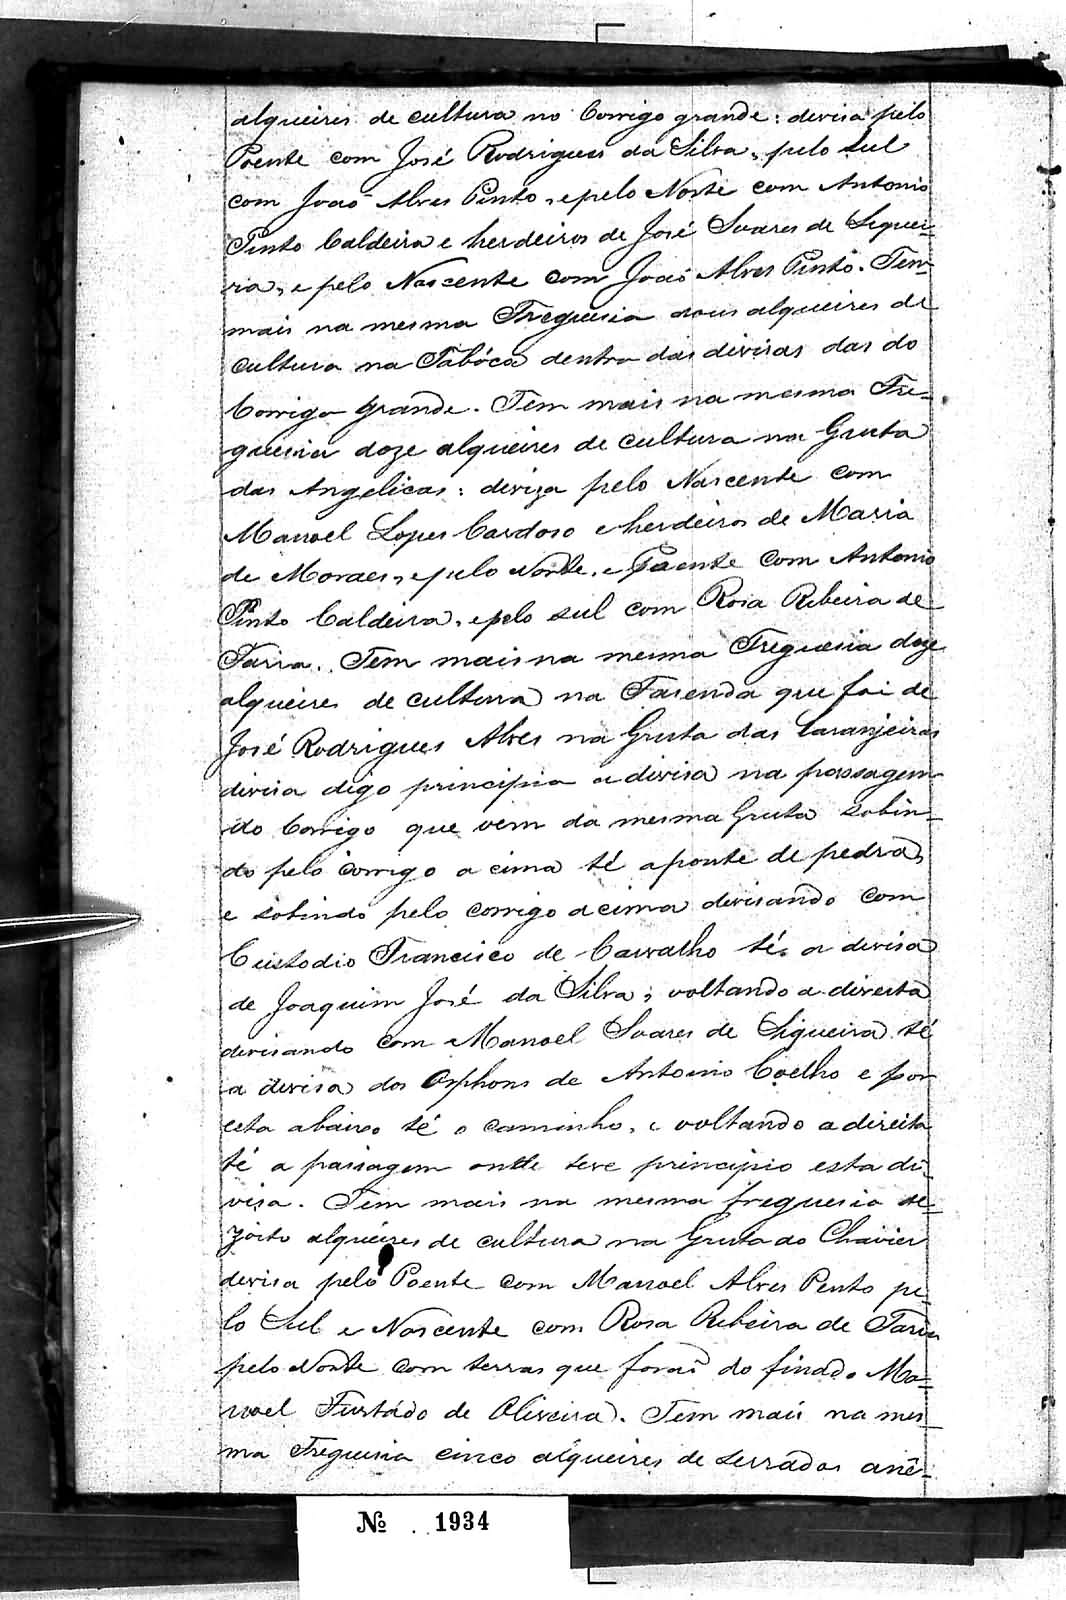 alqueires de cultura no Corrigo grande: devisa pelo
Poente com José Rodrigues da Silva, pelo sul
com João Alves Pinto, e pelo Norte com Antonio
Pinto Caldeira e herdeiros de José Suares de Siquei-
ra, e pelo Nascente com João Alves Pinto. Tem
mais na mesma Freguesia dous alqueires de
cultura na Tabóca dentro das divisas das do
Corrigo grande. Tem mais na mesma Fre-
guesia doze alqueires de cultura na Gruta
das Angelicas: deviza pelo Nascente com
Manoel Lopes Cardoso e herdeiros de Maria
de Moraes, e pelo Norte, e Poente com Antonio
Pinto Caldeira, e pelo sul com Rosa Ribeira de
Faria. Tem mais na mesma Freguesia doze
alqueires de cultura na Fasenda que foi de
José Rodrigues Alves na Gruta das Laranjeiras
divisa digo principia a divisa na passagem
do Corrigo que vem da mesma Gruta sobin-
do pelo corrigo a cima té a ponte de pedra,
e sobindo pelo corrigo acima devisando com
Custodio Francisco de Carvalho té a devisa
de Joaquim José da Silva; voltando a direita
devisando com Manoel Suares de Siqueira té
a devisa dos Orphons de Antonio Coelho e por
esta abaixo té o caminho, e voltando a direita
té a passagem onde teve principio esta di-
visa. Tem mais na mesma freguesia de-
zoito alqueires de cultura na Gruta do Chavier
devisa pelo Poente com Manoel Alves Pento pe-
lo Sul e Nascente com Rosa Ribeira de Faria
pelo Norte com terras que forão do finado Ma-
noel Furtado de Oliveira. Tem mais na mes-
ma Freguesia cinco alqueires de serrados ane-
№ 1934